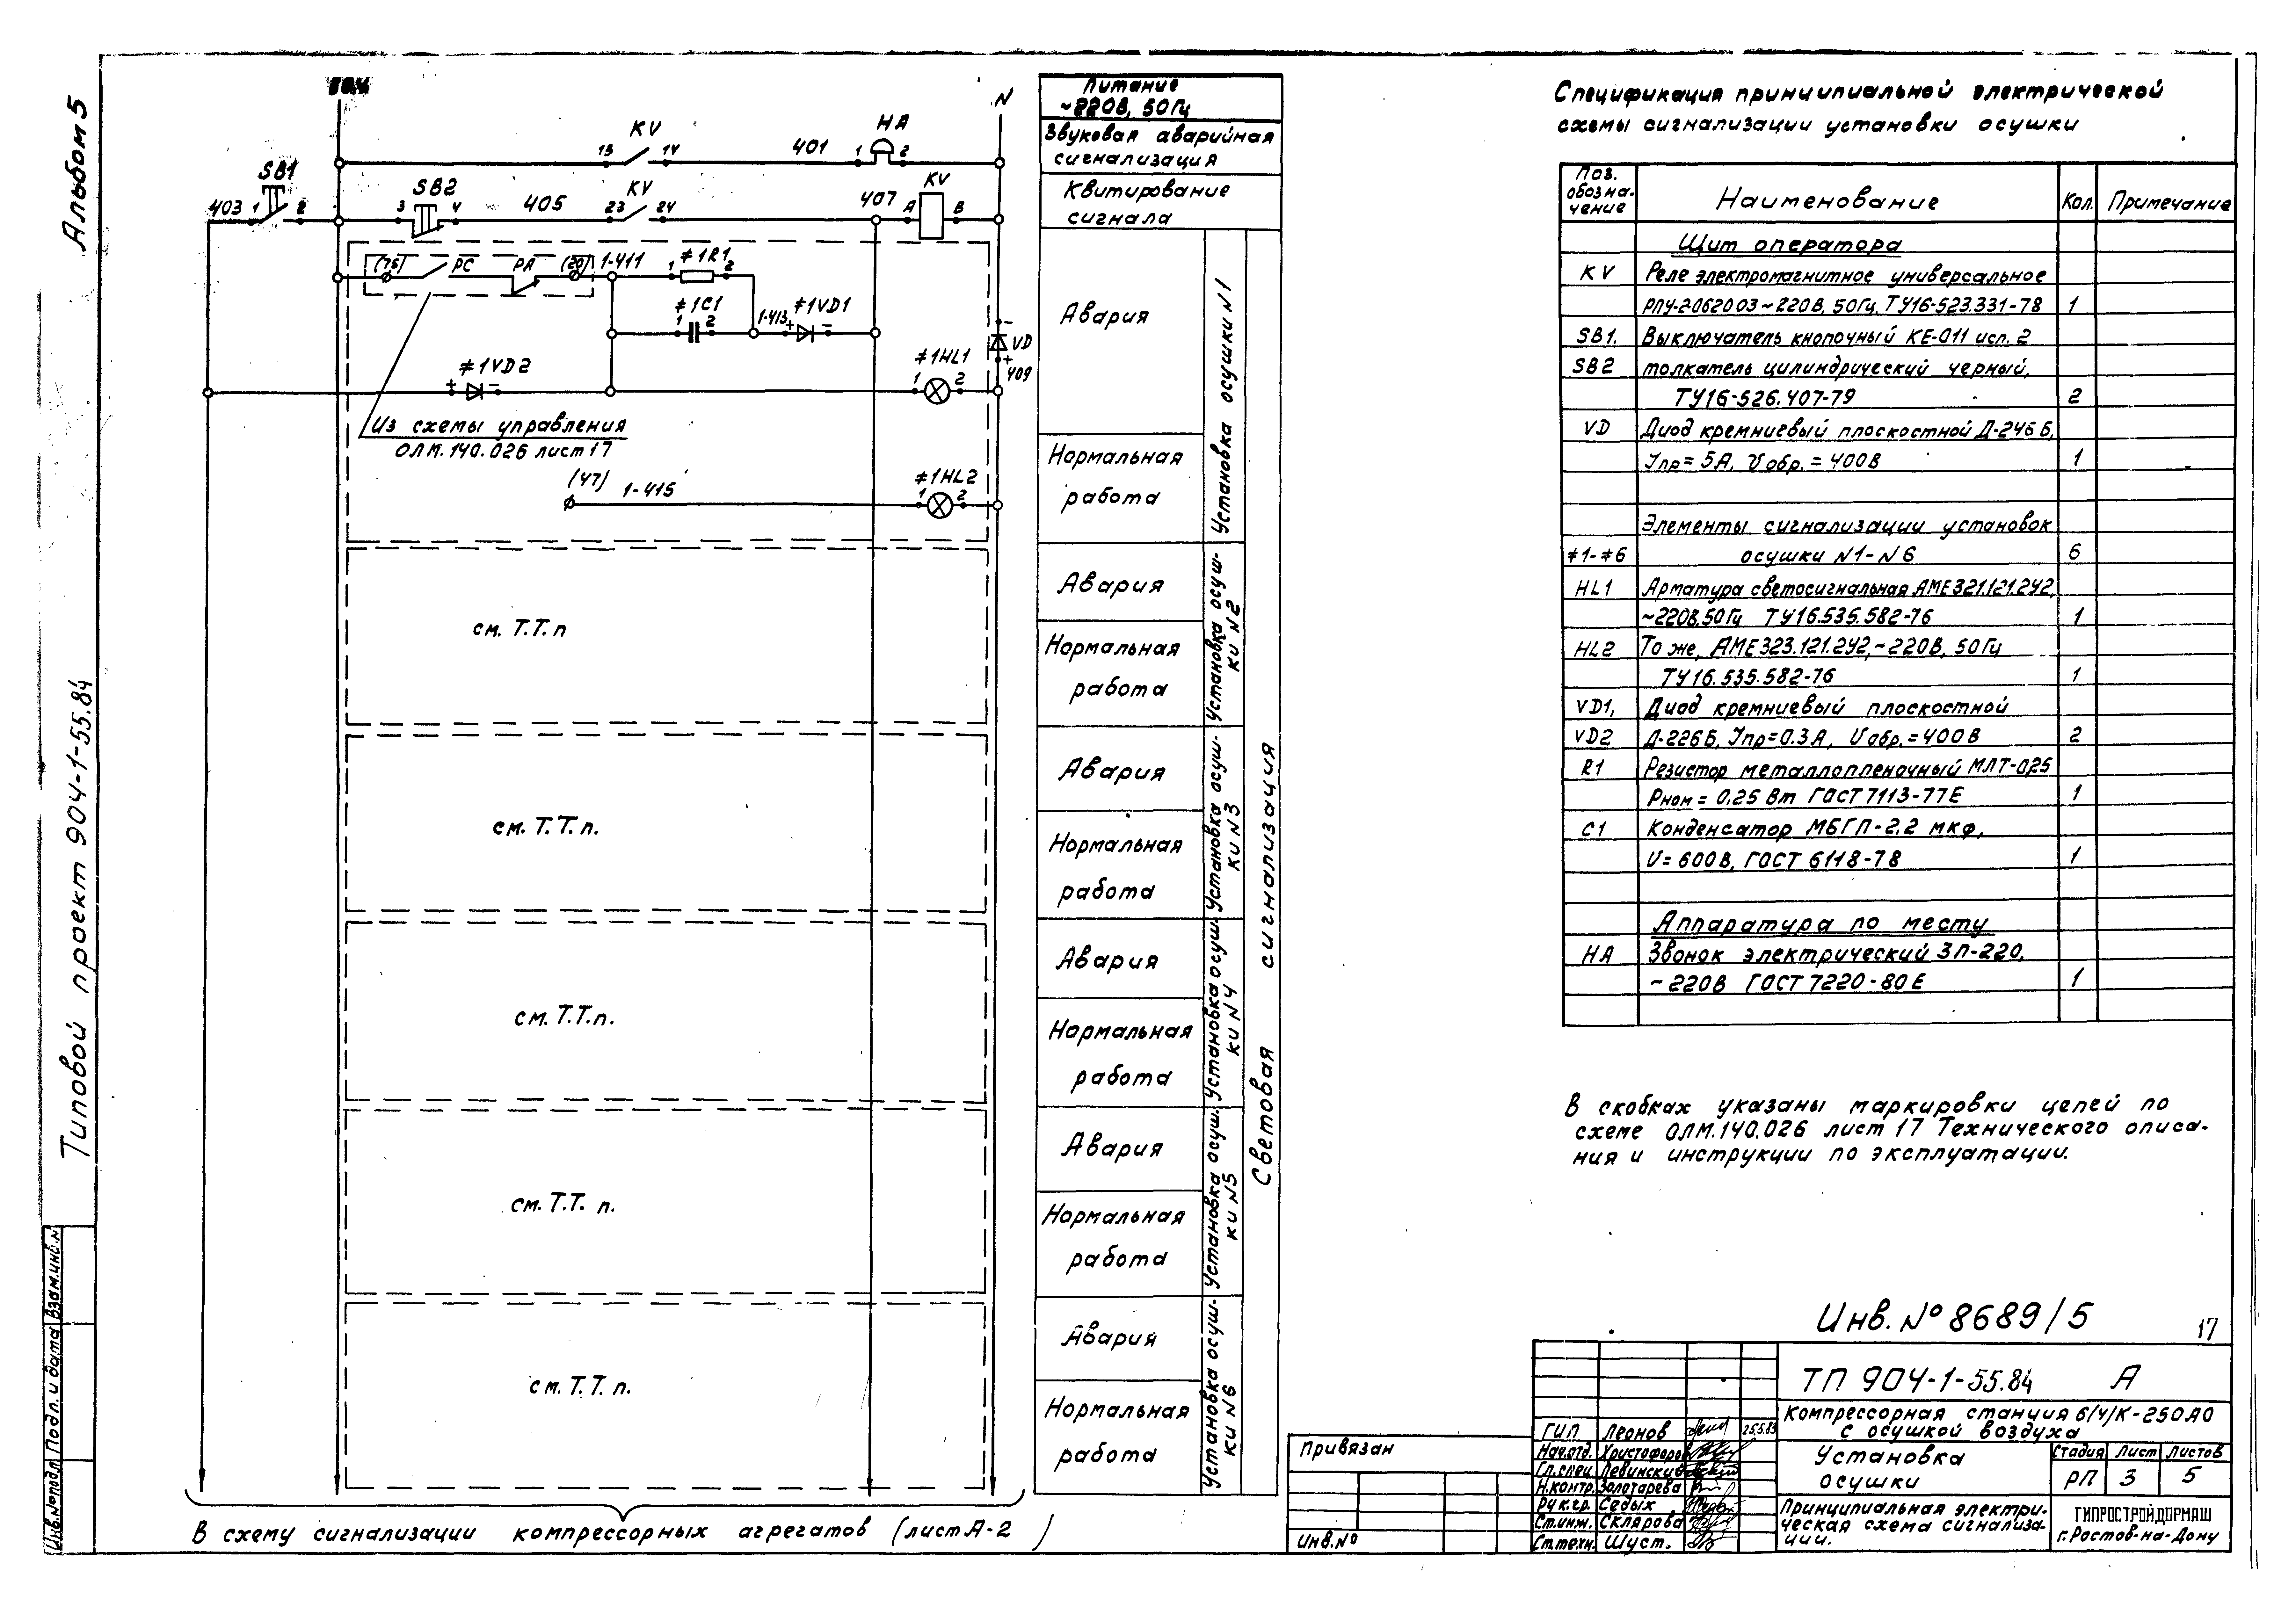 Альбом 5
Типовой проект 904-1-55.84
Инв.№подл. Подп. и дата Взам.инв.№
N
KV
HA
13 14 401 1 2
SB1
SB2
KV
KV
403 1 2
3 4 405 23 24 407 А В
(75) РС РА (20) 1-411 1 ≠1R1 2
≠1C1
1 2
1-413 + ≠1VD1 -
- VD +
409
≠1VD2
+ -
≠1HL1
1 2
Из схемы управления
ОЛМ.140.026 лист 17
(47) 1-415
≠1HL2
1 2
см. Т.Т.п
см. Т.Т.п.
см. Т.Т.п.
см. Т.Т. п.
см. Т.Т. п.
В схему сигнализации компрессорных агрегатов (лист А-2 )
Питание
~220В, 50Гц
Звуковая аварийная
сигнализация
Квитирование
сигнала
Авария
Нормальная
работа
Установка осушки N1
Авария
Нормальная
работа
Установка осуш-
ки N2
Авария
Нормальная
работа
Установка осуш-
ки N3
Авария
Нормальная
работа
Установка осуш-
ки N4
Авария
Нормальная
работа
Установка осуш-
ки N5
Авария
Нормальная
работа
Установка осуш-
ки N6
Световая сигнализация
Спецификация принципиальной электрической
схемы сигнализации установки осушки
Поз. обозна-чение Наименование Кол. Примечание
Щит оператора
KV Реле электромагнитное универсальное
РПУ-2-062003~220В, 50Гц, ТУ16-523.331-78 1
SB1. Выключатель кнопочный КЕ-011 исп. 2
SB2 толкатель цилиндрический черный,
ТУ16-526.407-79 2
VD Диод кремниевый плоскостной Д-246Б,
Jпр= 5А, Uобр. = 400В 1
Элементы сигнализации установок
≠1-≠6 осушки N1-N6 6
HL1 Арматура светосигнальная АМЕ321.121.2У2,
~220В,50Гц ТУ16.535.582-76 1
HL2 То же, АМЕ323.121.2У2,~220В, 50Гц
ТУ16.535.582-76 1
VD1, Диод кремниевый плоскостной
VD2 Д-226Б, Jпр=0.3А, Uобр.=400В 2
R1 Резистор металлопленочный МЛТ-0,25
Рном= 0,25 Вт ГОСТ 7113-77Е 1
C1 Конденсатор МБГП-2,2 мкф,
U= 600В, ГОСТ 6118-78 1
Аппаратура по месту
HA Звонок электрический ЗП-220,
~220В ГОСТ 7220-80Е 1
В скобках указаны маркировки цепей по
схеме ОЛМ.140.026 лист 17 Технического описа-
ния и инструкции по эксплуатации.
Инв. № 8689/5
17
ТП 904-1-55.84 А
Компрессорная станция 6/4/К-250А0
с осушкой воздуха
Установка
осушки
Стадия Лист Листов
РП 3 5
Принципиальная электри-
ческая схема сигнализа-
ции.
ГИПРОСТРОЙДОРМАШ
г. Ростов-на-Дону
ГИП Леонов 25.5.83
Нач.отд. Христофоров
Гл.спец. Левинский
Н.контр. Золотарева
Рук.гр. Седых
Ст.инж. Склярова
Ст.техн. Шуст.
Привязан
Инв.№